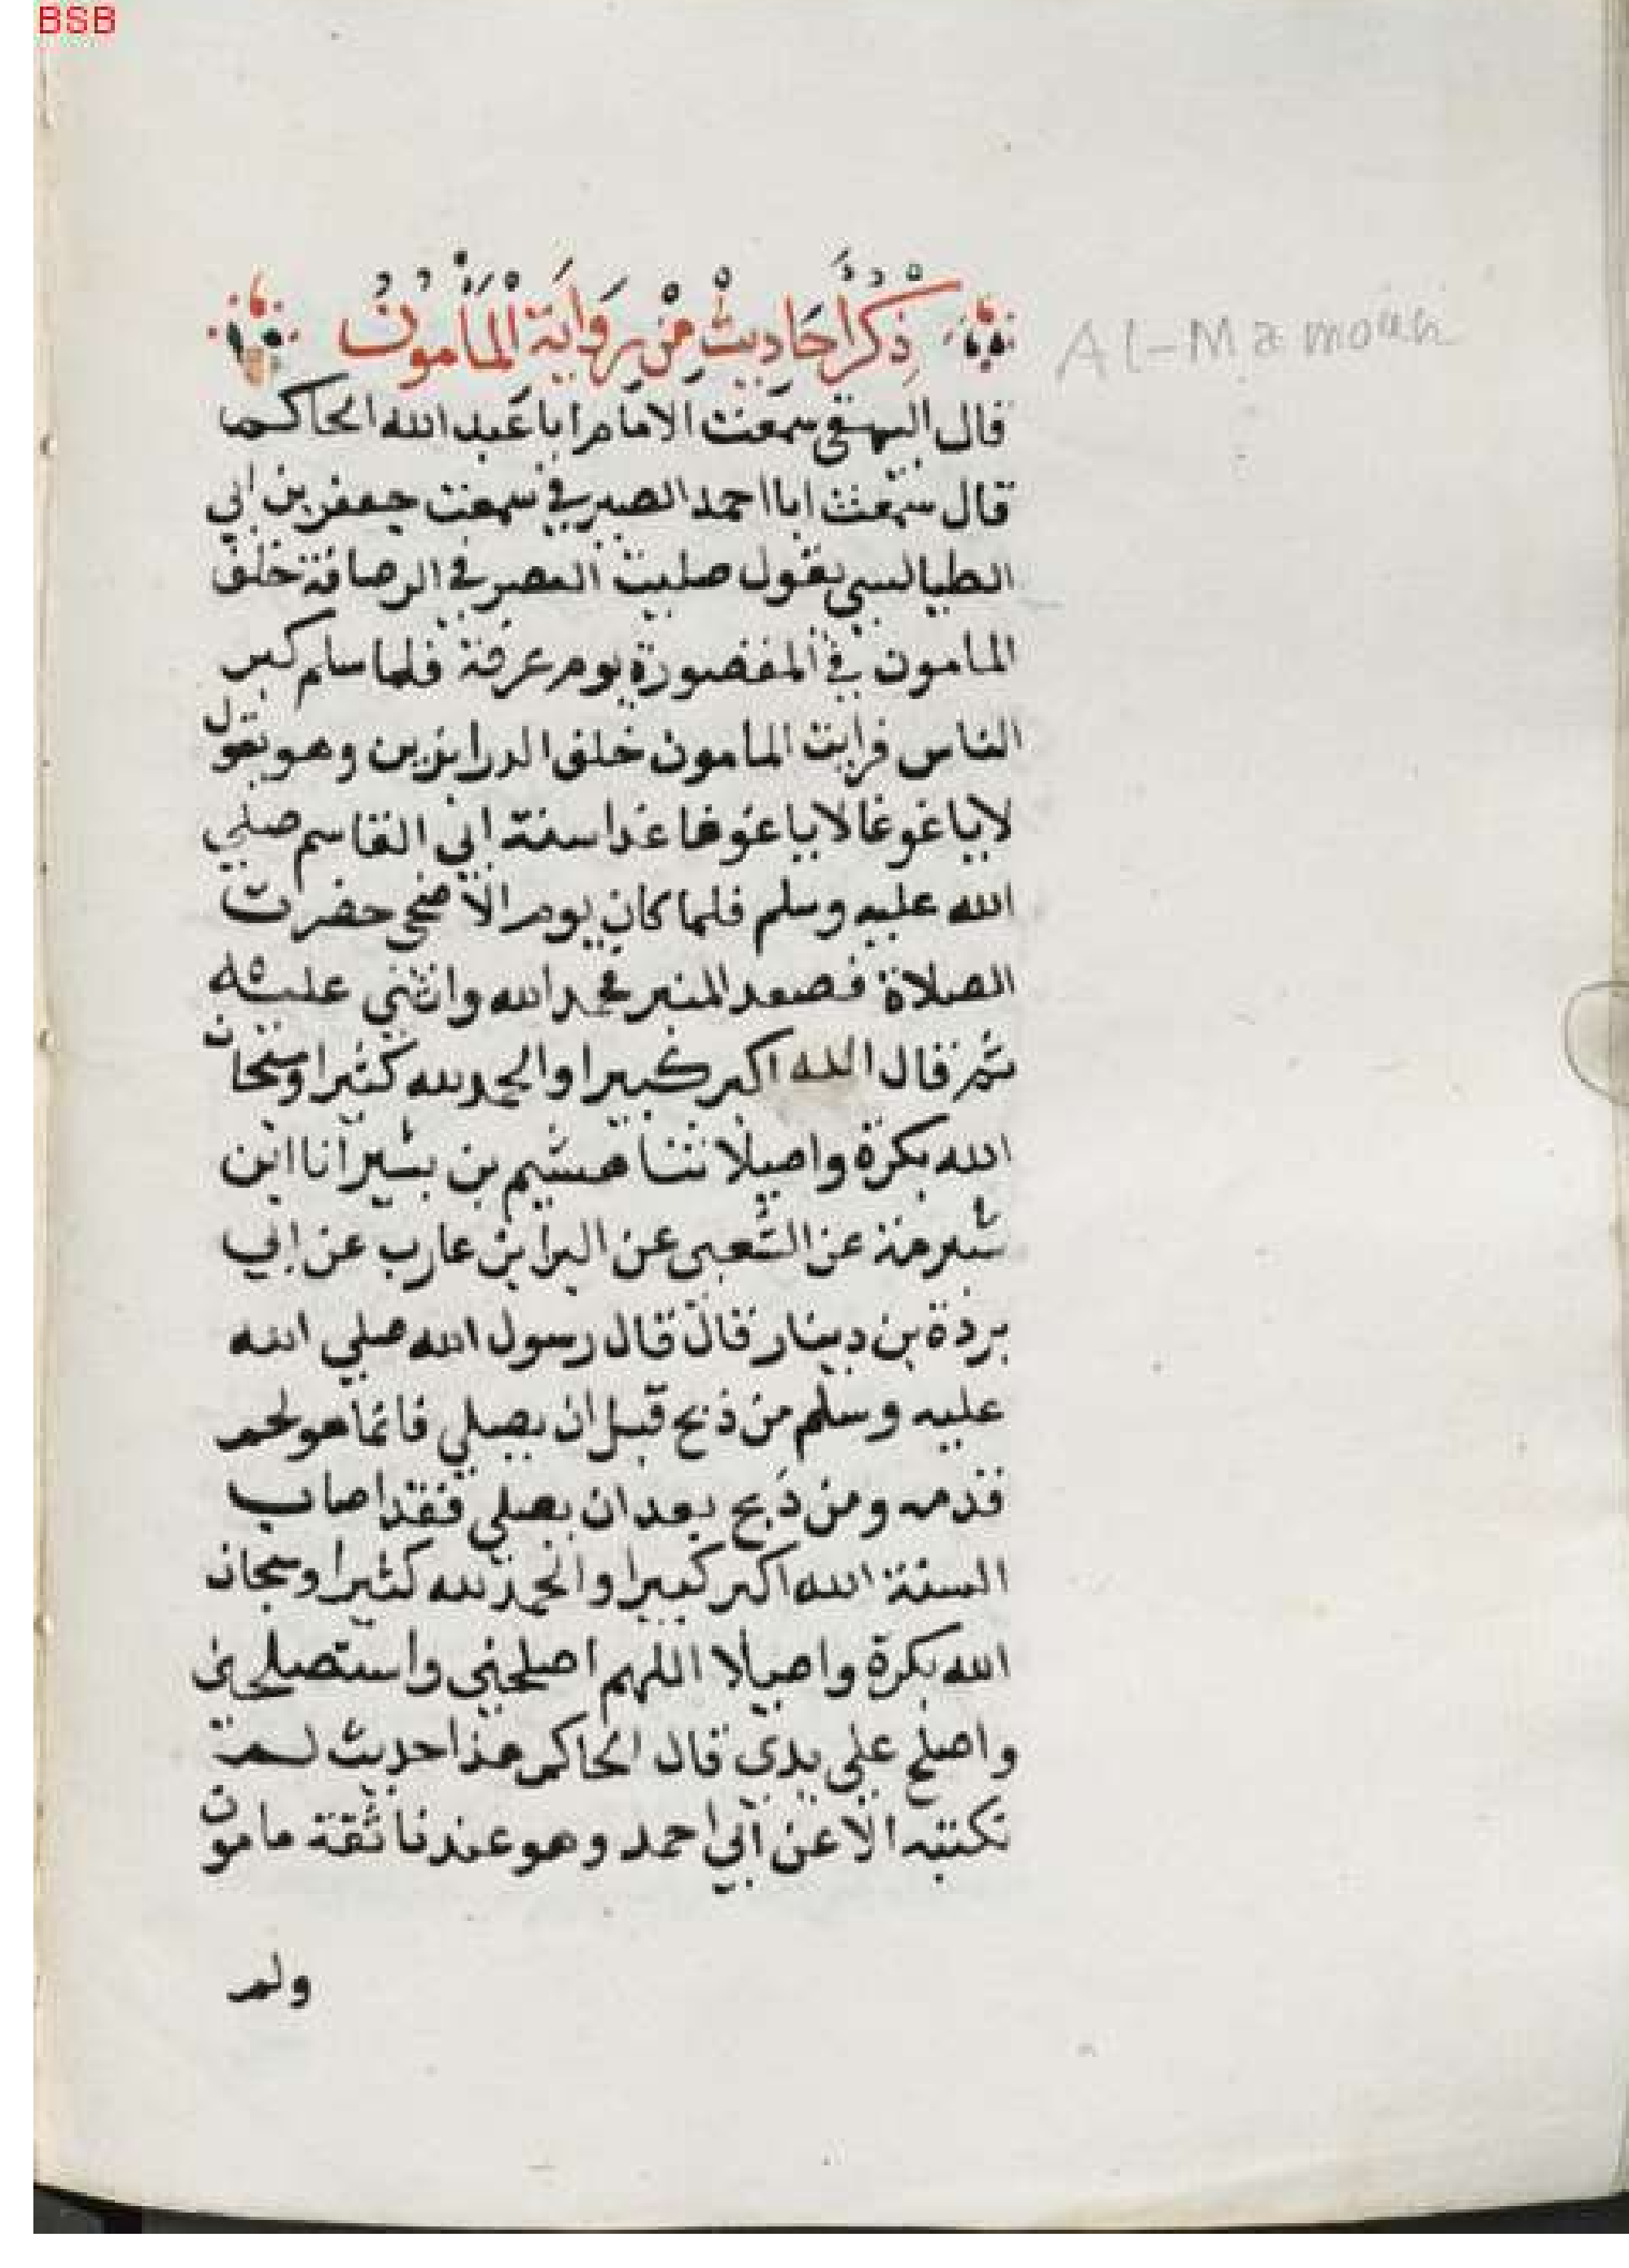 BSB
ذِكْرُ اَحَادِيثْ مِنْ رِوَايَةِ الْمَأْمُونُ
Al-Mamoun
قال البيهقي سمعت الامام ابا عبد الله الحاكم
قال سمعت ابا احمد الصيرفي سمعت جعفر بن ابي
الطيالسي يقول صليت العصر في الرصافة خلف
المامون في المقصورة يوم عرفة فلما سلم كبر
الناس فرايت المامون خلف الدرابزين وهو يقول
لا يا غوغا لا يا غوغا غدا سنة ابي القاسم صلي
الله عليه وسلم فلما كان يوم الاضحي حضرت
الصلاة فصعد المنبر فحمد الله واثني عليه
ثم قال الله اكبر كبيرا والحمد لله كثيرا وسبحان
الله بكرة واصيلا ثنا هشيم بن بشير انا ابن
شبرمة عن الشعبي عن البرا بن عارب عن ابي
بردة بن دينار قال قال رسول الله صلي الله
عليه وسلم من ذبح قبل ان يصلي فانما هو لحم
قدمه ومن ذبح بعد ان يصلي فقد اصاب
السنة الله اكبر كبيرا والحمد لله كثيرا وسبحان
الله بكرة واصيلا اللهم اصلحني واستصلحني
واصلح علي يدي قال الحاكم هذا حديث لم
نكتبه الا عن ابي احمد وهو عندنا ثقة مامون
ولم